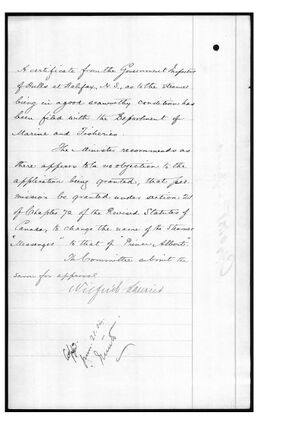 A certificate from the Government Inspector
of Hulls at Halifax, N.S., as to the steamer
being in a good seaworthy condition has
been filed with the Department of
Marine and Fisheries.
The Minister recommends as
there appears to be no objection to the
application being granted, that per-
mission be granted under section
of Chapter 72 of the Revised Statutes of
Canada, to change the name of the Steamer
"Messenger" to that of "Prince Albert".
The Committee submit the
same for approval.
Wilfrid Laurier
Minto